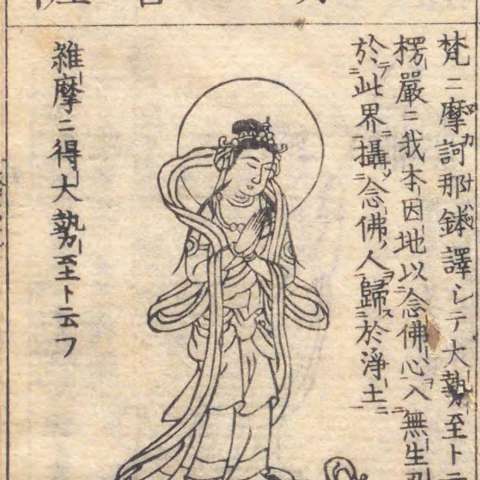 梵ニ摩訶那鉢譯シテ大勢至ト云
楞嚴ニ我本因地以念佛心入無生忍
於此界攝念佛人歸於淨土
維摩ニ得大勢至ト云フ